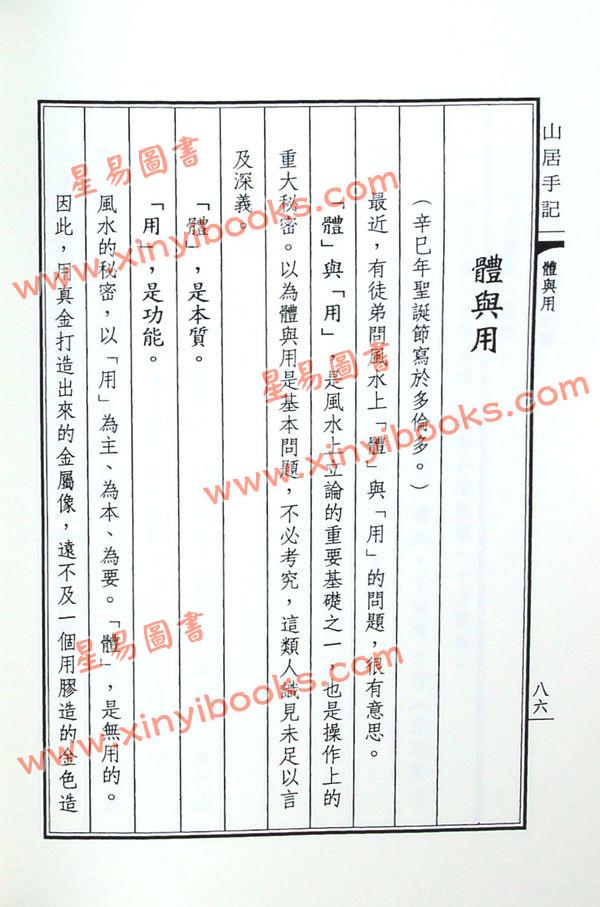 山居手記
體與用
八六
體與用
（辛巳年聖誕節寫於多倫多。）
最近，有徒弟問風水上「體」與「用」的問題，很有意思。
「體」與「用」，是風水上立論的重要基礎之一，也是操作上的
重大秘密。以為體與用是基本問題，不必考究，這類人識見未足以言
及深義。
「體」，是本質。
「用」，是功能。
風水的秘密，以「用」為主、為本、為要。「體」，是無用的。
因此，用真金打造出來的金屬像，遠不及一個用膠造的金色造
星易圖書
www.xinyibooks.com
星易圖書
www.xinyibooks.com
星易圖書
www.xinyibooks.com